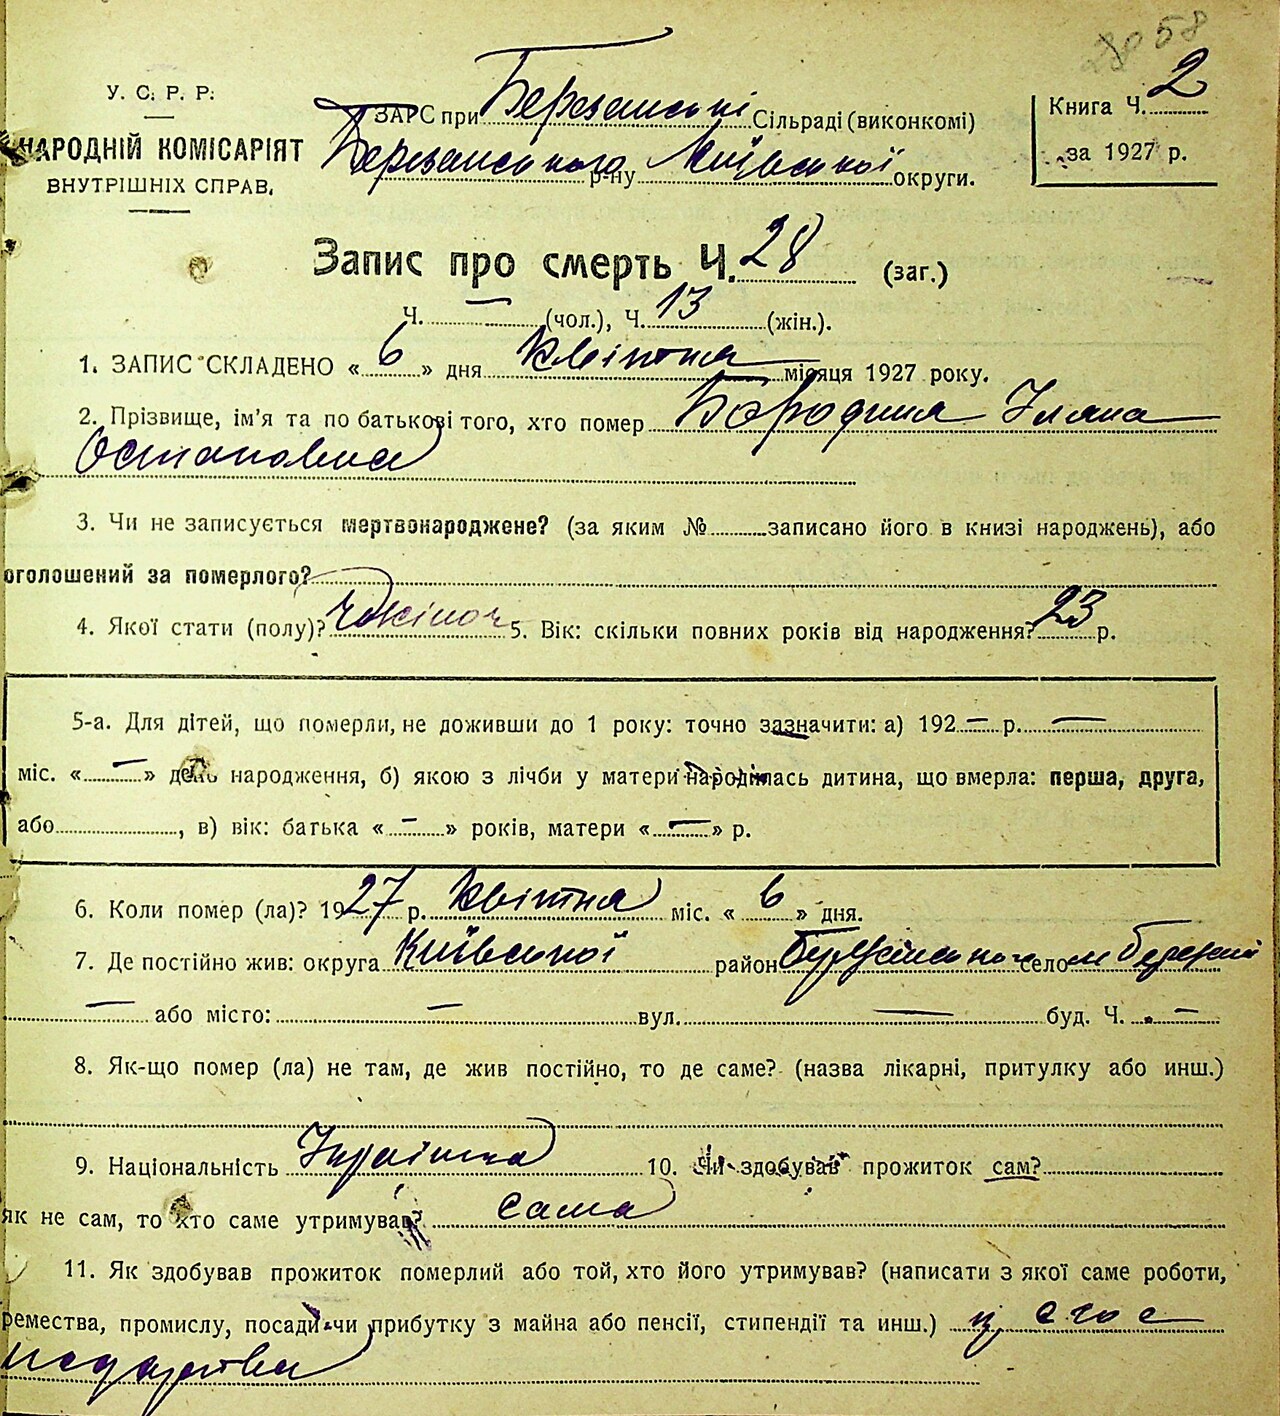 58
У. С. Р. Р.
НАРОДНІЙ КОМІСАРІЯТ
ВНУТРІШНІХ СПРАВ.
ЗАГС при Березанські Сільраді (виконкомі)
Березанського р-ну Київської округи.
Книга Ч. 2
за 1927 р.
Запис про смерть Ч. 28 (заг.)
Ч. — (чол.), Ч. 13 (жін.).
1. ЗАПИС СКЛАДЕНО « 6 » дня квітня місяця 1927 року.
2. Прізвище, ім'я та по батькові того, хто помер Бородина Уляна
Остаповна
3. Чи не записується мертвонароджене? (за яким № записано його в книзі народжень), або
оголошений за померлого?
4. Якої стати (полу)? жіноч 5. Вік: скільки повних років від народження? 23 р.
5-а. Для дітей, що померли, не доживши до 1 року: точно зазначити: а) 192 — р. —
міс. « — » день народження, б) якою з лічби у матери народилась дитина, що вмерла: перша, друга,
або , в) вік: батька « — » років, матери « — » р.
6. Коли помер (ла)? 1927 р. квітня міс. « 6 » дня.
7. Де постійно жив: округа Київської район Березанського село м Березані
— або місто: — вул. — буд. Ч. —
8. Як-що помер (ла) не там, де жив постійно, то де саме? (назва лікарні, притулку або инш.)
9. Національність Українка 10. Чи здобував прожиток сам?
як не сам, то хто саме утримував? сама
11. Як здобував прожиток померлий або той, хто його утримував? (написати з якої саме роботи,
ремества, промислу, посади чи прибутку з майна або пенсії, стипендії та инш.)